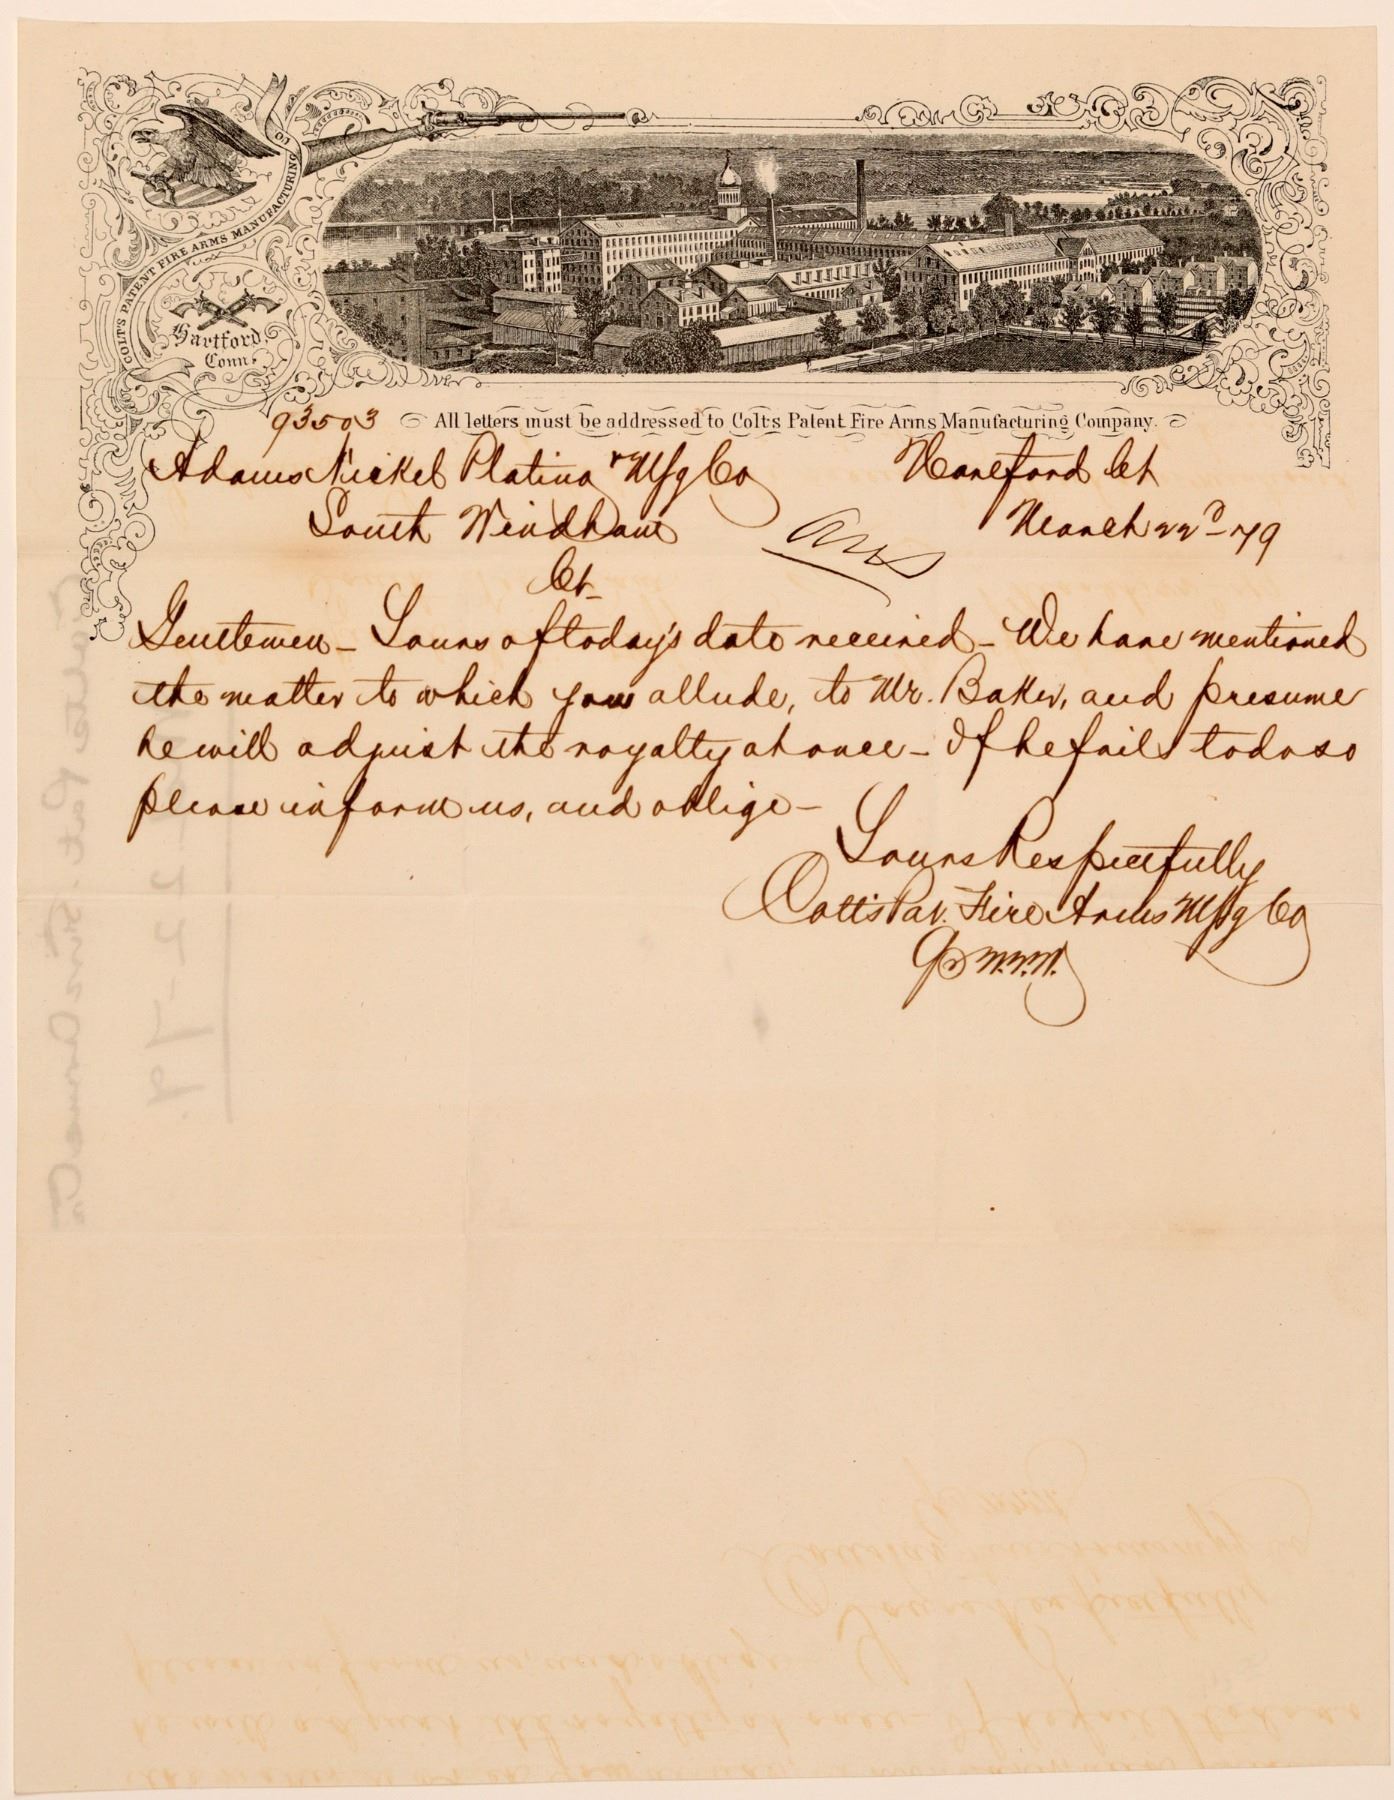 COLT'S PATENT FIRE ARMS MANUFACTURING CO
Hartford,
Conn.
93503
All letters must be addressed to Colt's Patent Fire Arms Manufacturing Company.
Adams Nickel Plating & Mfg Co
Hartford Ct
South Windham
March 22d 79
Ans
Ct
Gentlemen – Yours of today's date received – We have mentioned
the matter to which you allude, to Mr. Baker, and presume
he will adjust the royalty at once – If he fails to do so
please inform us, and oblige –
Yours Respectfully
Colt's Pat. Fire Arms Mfg Co
Colts Pat. Fire Arms Co
22-79